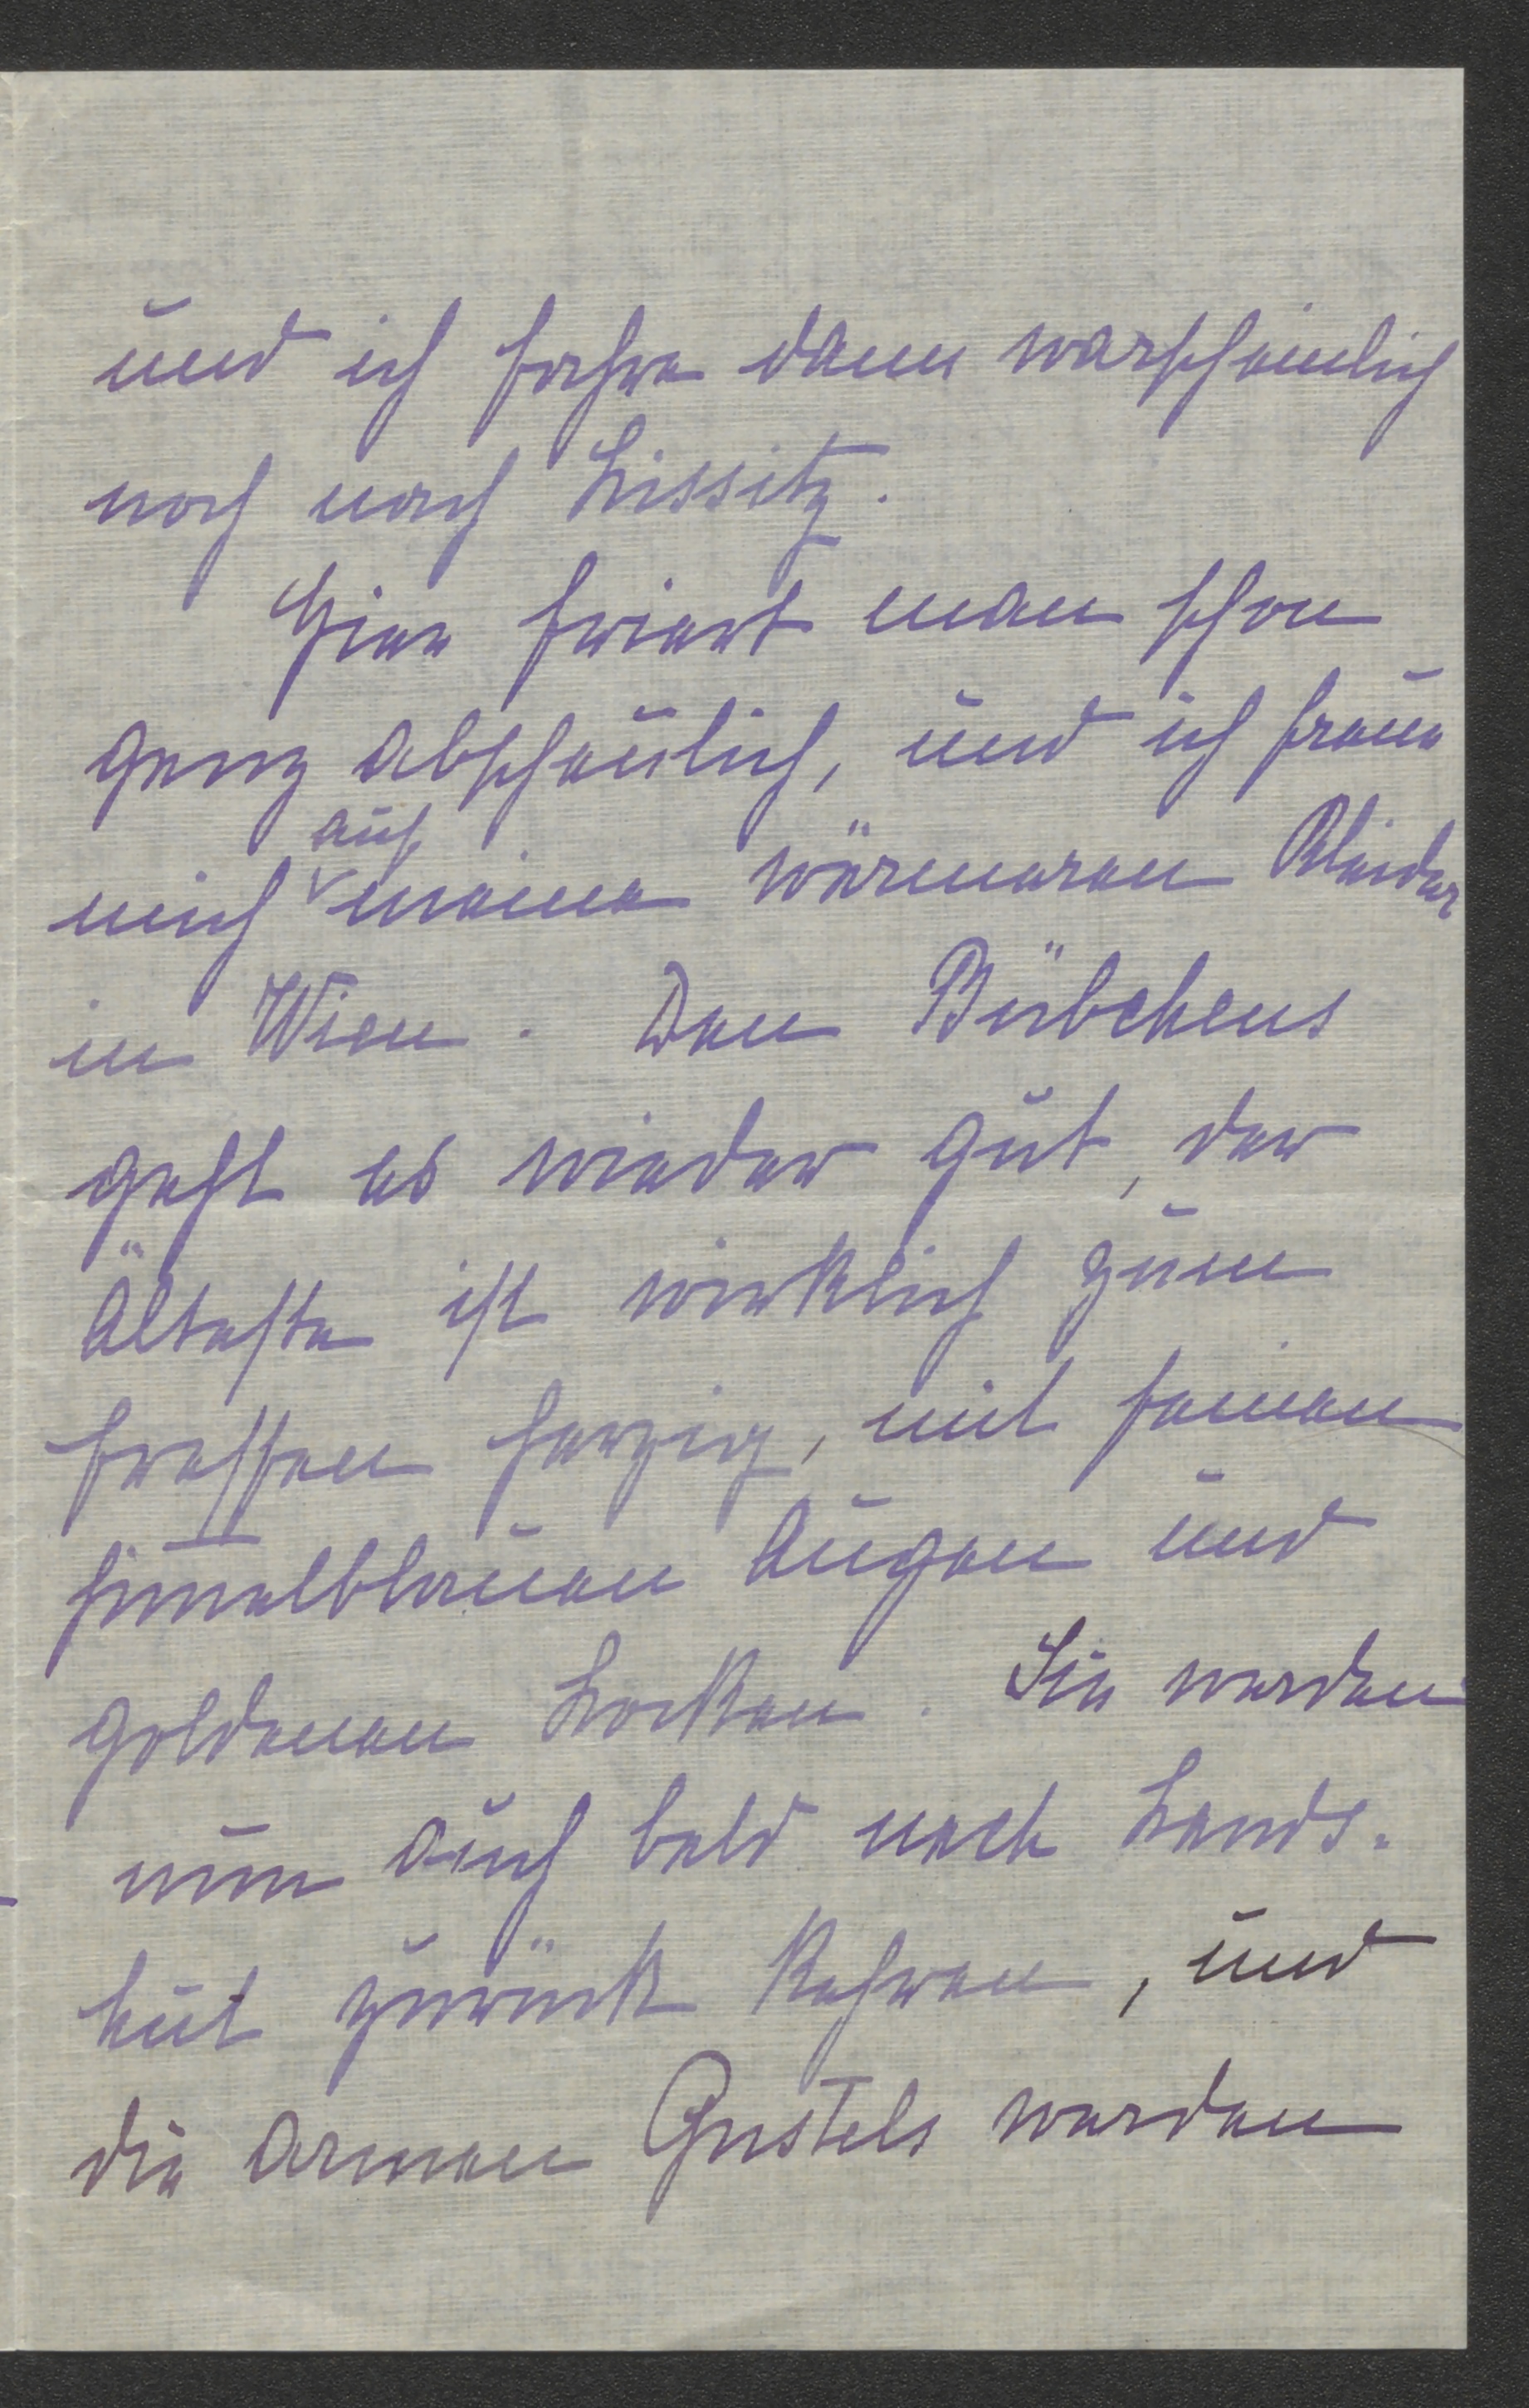 und ich fahre dann warscheinlich
noch nach Lissitz.
Hier friert man schon
ganz abscheulich, und ich freue
mich auf meine wärmeren Kleider
in Wien. Den Bübchens
geht es wieder gut, der
Älteste ist wirklich zum
fressen herzig, mit seinen
him̅elblauen Augen und
goldenen Locken. Sie werden
nun auch bald nach Lands-
hut zurück kehren, und
die armen Gustels werden